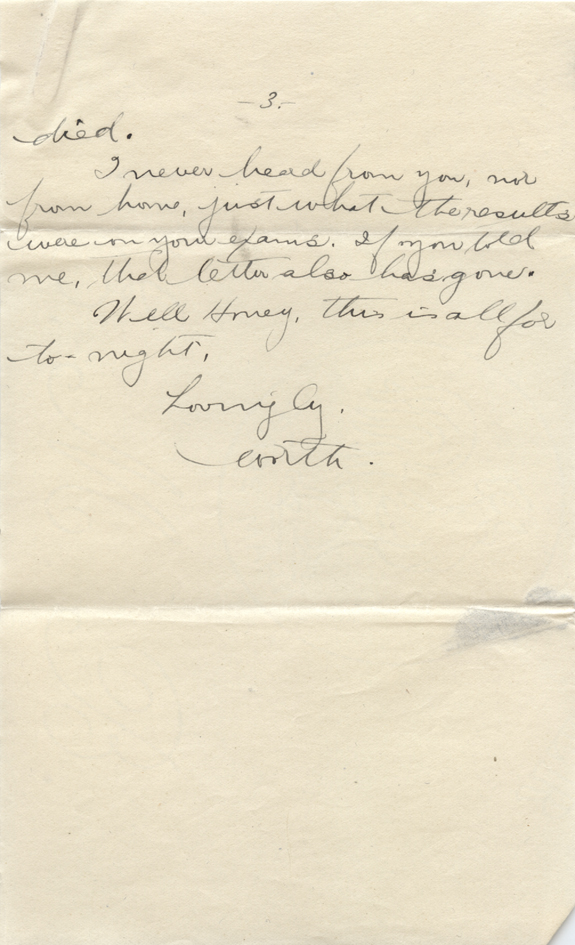 -3.-
died.
I never head from you, nor
from home, just what the results
were on your exams. If you told
me, that letter also has gone.
Well Honey, this is all for
to-night,
Lovingly.
Worth.